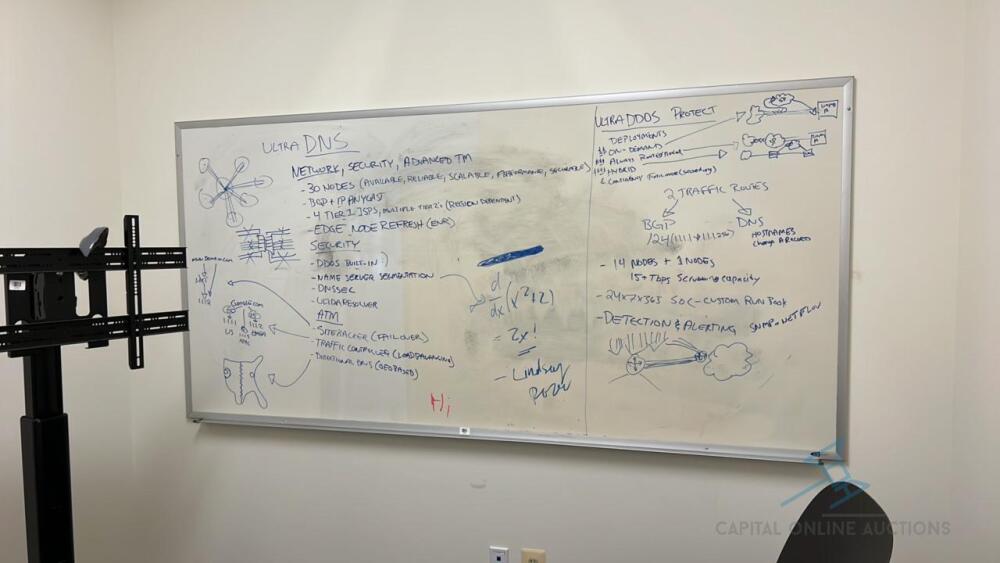 ULTRA DNS
NETWORK, SECURITY, ADVANCED TM
- 30 NODES (AVAILABLE, RELIABLE, SCALABLE, PERFORMANCE, SECURABLE)
- BGP + IP ANYCAST
- 4 TIER 1 ISPS, MULTIPLE TIER 2's (REGION DEPENDENT)
- EDGE NODE REFRESH (ENR)
SECURITY
- DDOS BUILT-IN
- NAME SERVER SEGMENTATION
- DNSSEC
- ULTRARESOLVER
ATM
- SITEBACKER (FAILOVER)
- TRAFFIC CONTROLLER (LOAD BALANCING)
- DIRECTIONAL DNS (GEO BASED)
Google.com
US
d/dx (x²+2)
= 2x!
- Lindsay
Hi
ULTRA DDOS PROTECT
DEPLOYMENTS
ON-DEMAND
ALWAYS ROUTED
HYBRID
2 TRAFFIC ROUTES
BGP
/24
DNS
HOSTNAMES
Change A RECORD
- 14 NODES + 1 NODES
15+ Tbps Scrubbing capacity
- 24x7x365 SOC - CUSTOM RUN BOOK
- DETECTION & ALERTING SNMP + NETFLOW
CAPITAL ONLINE AUCTIONS